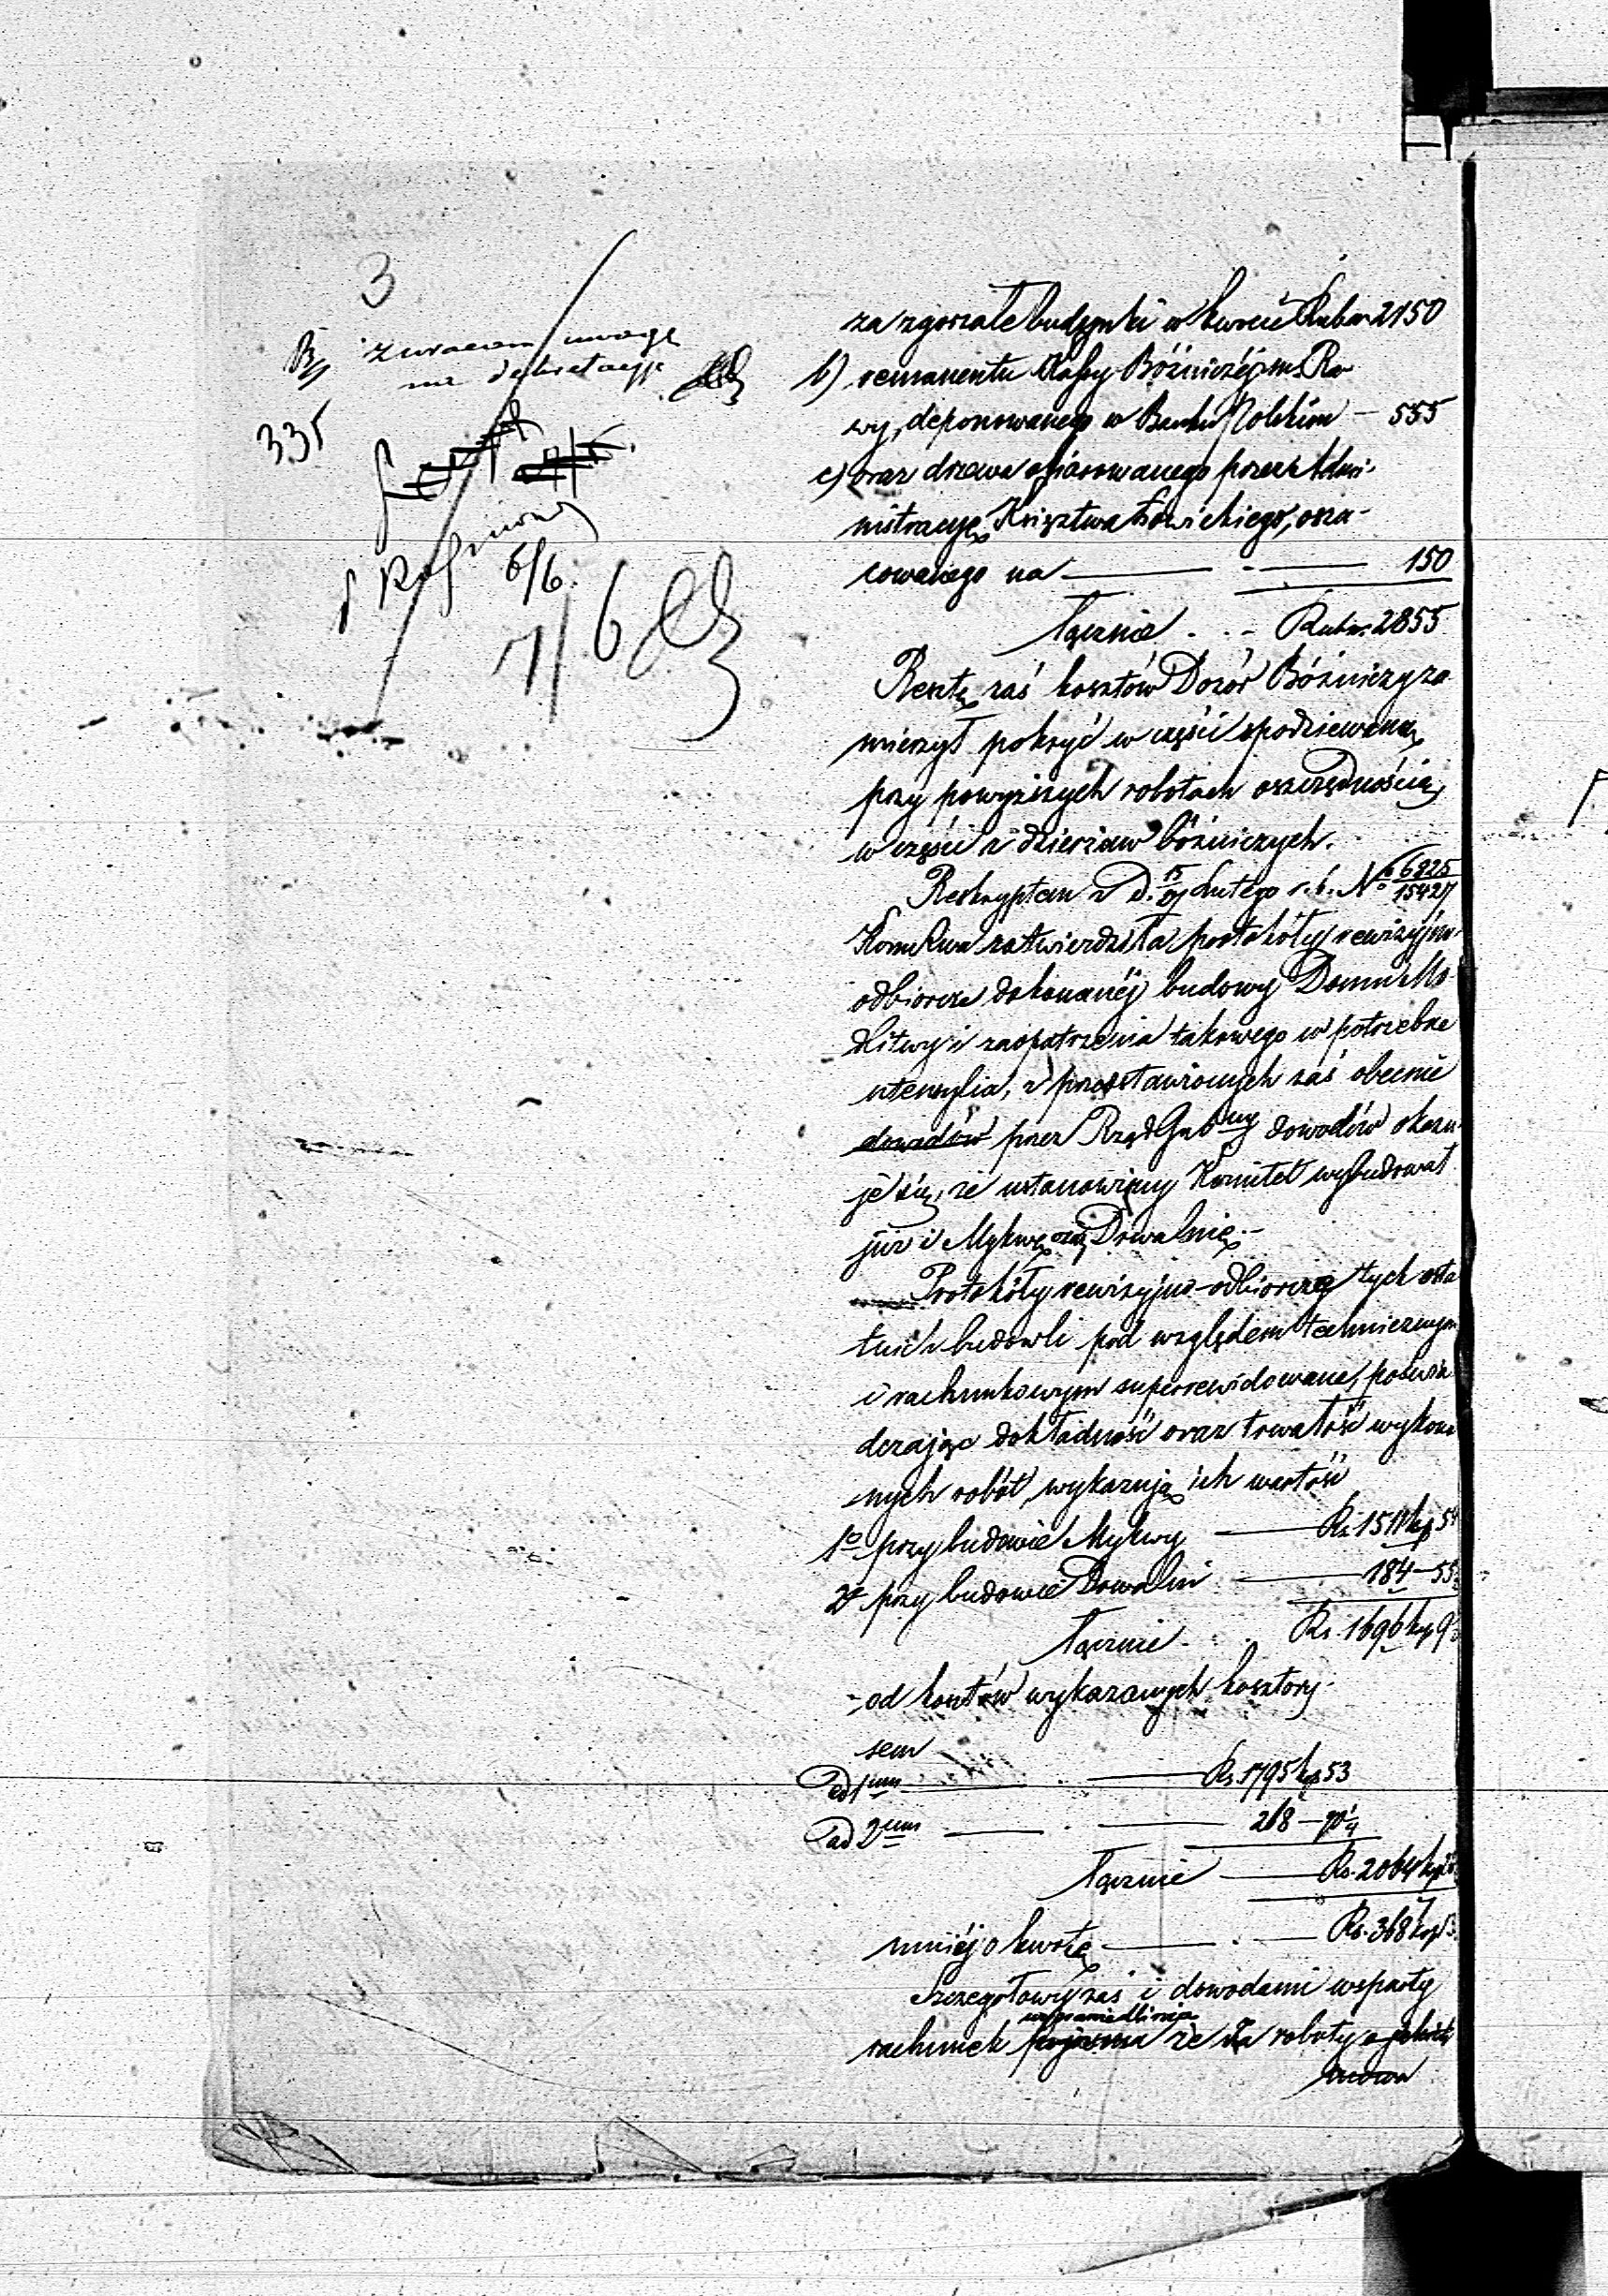 3
zwracam uwagę
na dekretacyję
335
6/6.
7/6
za zgorzałe budynki w kwocie Rubsr. 2150
b) remanentu Kassy Bóżniczéj m. Ra-
wy, deponowanego w Banku Polskim — 555
c) oraz drzewa ofiarowanego przez Admi-
nistracyę Księztwa Łowickiego, osza-
cowanego na — 150
łącznie . . - Rubsr. 2855
Resztę zaś kosztów Dozór Bóżniczy za-
mierzył pokryć w części spodziewaną
przy powyższych robotach oszczędnością,
w części z dzierżaw bóżniczych.
Reskryptem z D. Lutego r. b. No 6825/15427
Kom Rwa zatwierdziła protokóły rewizyjno-
odbiorcze dokonanéj budowy Domu Mo-
dlitwy i zaopatrzenia takowego w potrzebne
utensylia, z przedstawionych zaś obecnie
dowodów przez Rząd Gubny dowodów okazu-
je się, że ustanowiony Komitet wybudował
już i Mykwę oraz Drwalnię.-
Protokóły rewizyjno-odbiorcze tych osta-
tnich budowli pod względem technicznym
i rachunkowym superrewidowane, poświa-
dczając dokładność oraz trwałość wykona-
nych robót, wykazują ich wartość
1o przy budowie Mykwy — Rs. 1511 kp 54
2o przy budowie Drwalni — 184 — 55
łącznie . . Rs. 1696 kp 9
- od kosztów wykazanych kosztory-
sem
ad 1um — . — Rs. 1795 kp 53
ad 2um — . — 268 —
łącznie — Rs. 2064 kp
mniéj o kwotę — . — Rs. 368 kop
Szczegółowy zaś i dowodami wsparty
usprawiedliwia
rachunek że za roboty